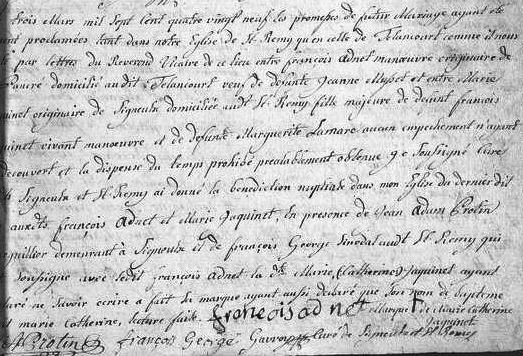 trois Mars mil sept cent quatre vingt neuf les promesses de futur Mariage ayant été
proclamées tant dans notre Eglise de St Remy qu'en celle de Telancourt comme il nous
par lettres du Reverend Vicaire de ce lieu entre françois adnet manœuvre originaire de
domicilié audit Telancourt veuf de defunte Jeanne Musset et entre Marie
originaire de Signeulx domiciliée audt St Remy fille majeure de defunt françois
vivant manœuvre et de defunte Marguerite Lamare aucun empechement n'ayant
decouvert et la dispense du temps prohibé prealablement obtenue Je Soussigné Curé
Signeulx et St Remy ai donné la benediction nuptiale dans mon Eglise du dernier dit
auxdts françois adnet et Marie Jaquinet, en presence de Jean adam Brolin
demeurant à Signeulx et de françois George Sinodal audt St Remy qui
soussigné avec ledit françois adnet la dte Marie (Catherine) Jaquinet ayant
ne savoir ecrire a fait sa marque ayant aussi declaré que son nom de bapteme
marie Catherine, lecture faite francois adnet Marque de Marie Catherine
Jaquinet
A Brolin françois George Curé de Signeulx et St Remy